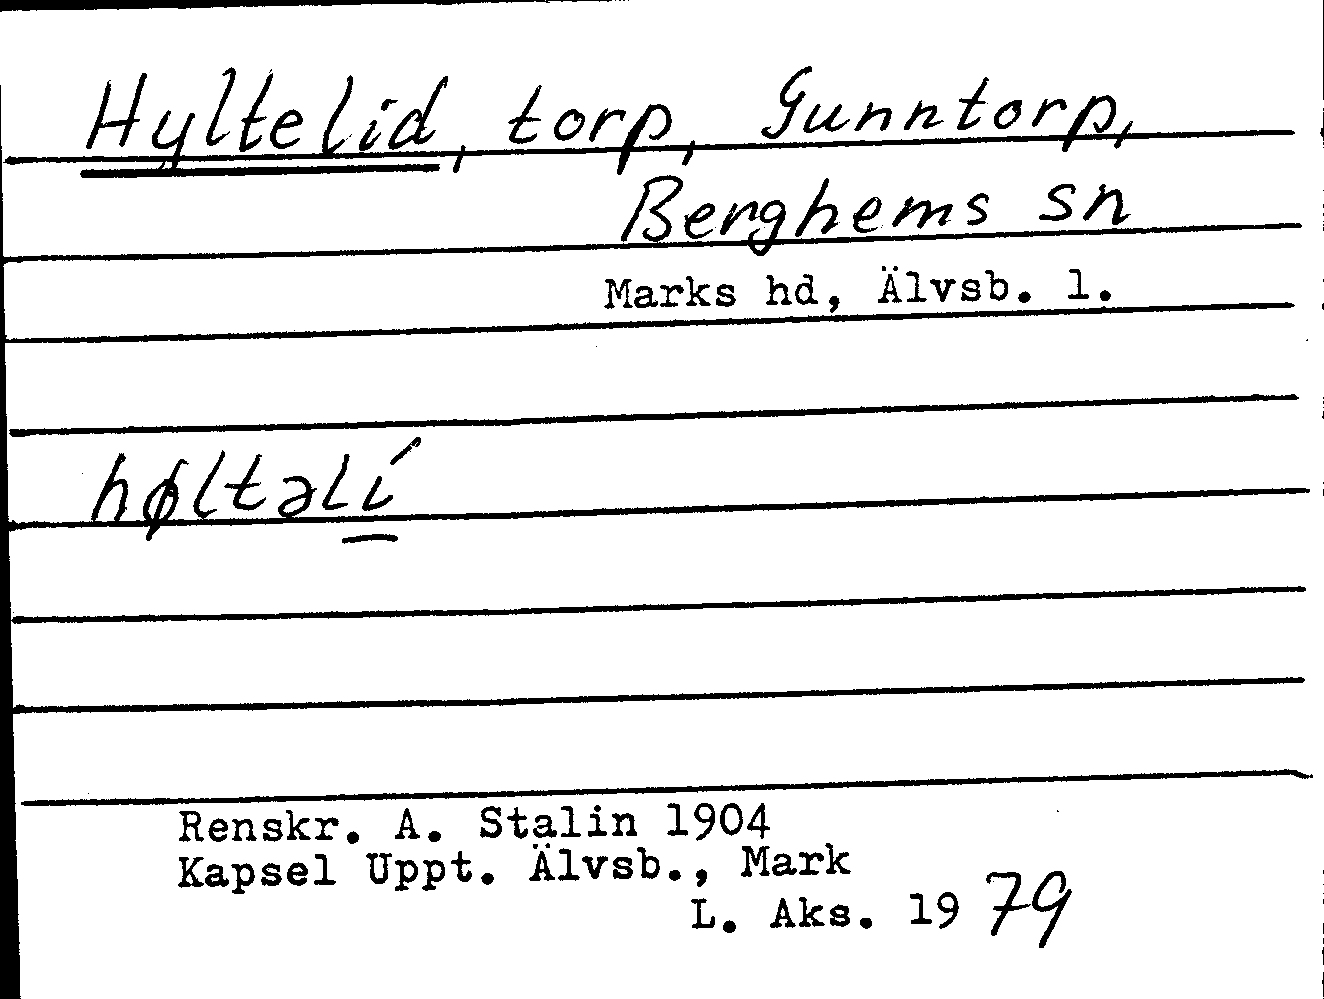 Hyltelid, torp, Gunntorp,
Berghems sn
Marks hd, Älvsb. l.
høltəlí
Renskr. A. Stalin 1904
Kapsel Uppt. Älvsb., Mark
L. Aks. 1979